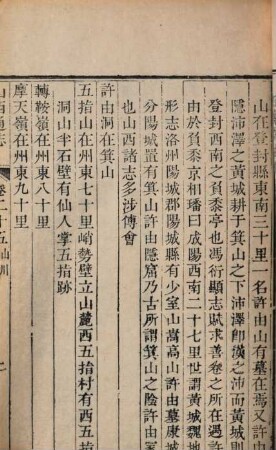 山在登封縣東南三十里一名許由山有墓在焉又許由
隱沛澤之黃城耕于箕山之下沛澤即漢之沛而黃城則
登封西南之負黍亭也馮衍顯志賦求善卷之所在遇許
由於負黍京相璠曰成陽西南二十七里世謂黃城魏地
形志洛州陽城郡陽城縣有少室山嵩高山許由墓康城
分陽城置有箕山許由隱窟乃古所謂箕山之陰許由冢
也山西諸志多涉傅會
許由洞在箕山
五指山在州東七十里峭勢壁立山麓西五指村有西五
洞山半石壁有仙人掌五指跡
轉鞍嶺在州東八十里
摩天嶺在州東九十里
山西通志
卷二十五
山川